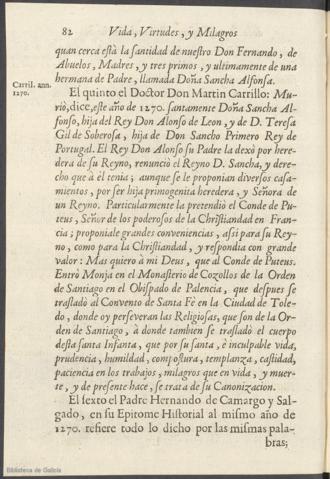 82 Vida, Virtudes, y Milagros
quan cerca està la santidad de nuestro Don Fernando, de
Abuelos, Madres, y tres primos, y ultimamente de una
hermana de Padre, llamada Doña Sancha Alfonsa.
Carril. ann.
1270.
El quinto el Doctor Don Martin Carrillo: Mu-
riò, dice, este año de 1270. santamente Doña Sancha Al-
fonso, hija del Rey Don Alonso de Leon, y de D. Teresa
Gil de Soberosa, hija de Don Sancho Primero Rey de
Portugal. El Rey Don Alonso su Padre la dexò por here-
dera de su Reyno, renunciò el Reyno D. Sancha, y dere-
cho que à èl tenia; aunque se le proponian diversos casa-
mientos, por ser hija primogenita heredera, y Señora de
un Reyno. Particularmente la pretendiò el Conde de Pu-
teus, Señor de los poderosos de la Christiandad en Fran-
cia; proponiale grandes conveniencias, assi para su Rey-
no, como para la Christiandad, y respondia con grande
valor: Mas quiero à mi Deus, que al Conde de Puteus.
Entrò Monja en el Monasterio de Cozollos de la Orden
de Santiago en el Obispado de Palencia, que despues se
trasladò al Convento de Santa Fè en la Ciudad de Tole-
do, donde oy perseveran las Religiosas, que son de la Or-
den de Santiago, à donde tambien se trasladò el cuerpo
desta santa Infanta, que por su santa, è inculpable vida,
prudencia, humildad, compostura, templanza, castidad,
paciencia en los trabajos, milagros que en vida, y muer-
te, y de presente hace, se trata de su Canonizacion.
El sexto el Padre Hernando de Camargo y Sal-
gado, en su Epitome Historial al mismo año de
1270. refiere todo lo dicho por las mismas pala-
bras;
Biblioteca de Galicia